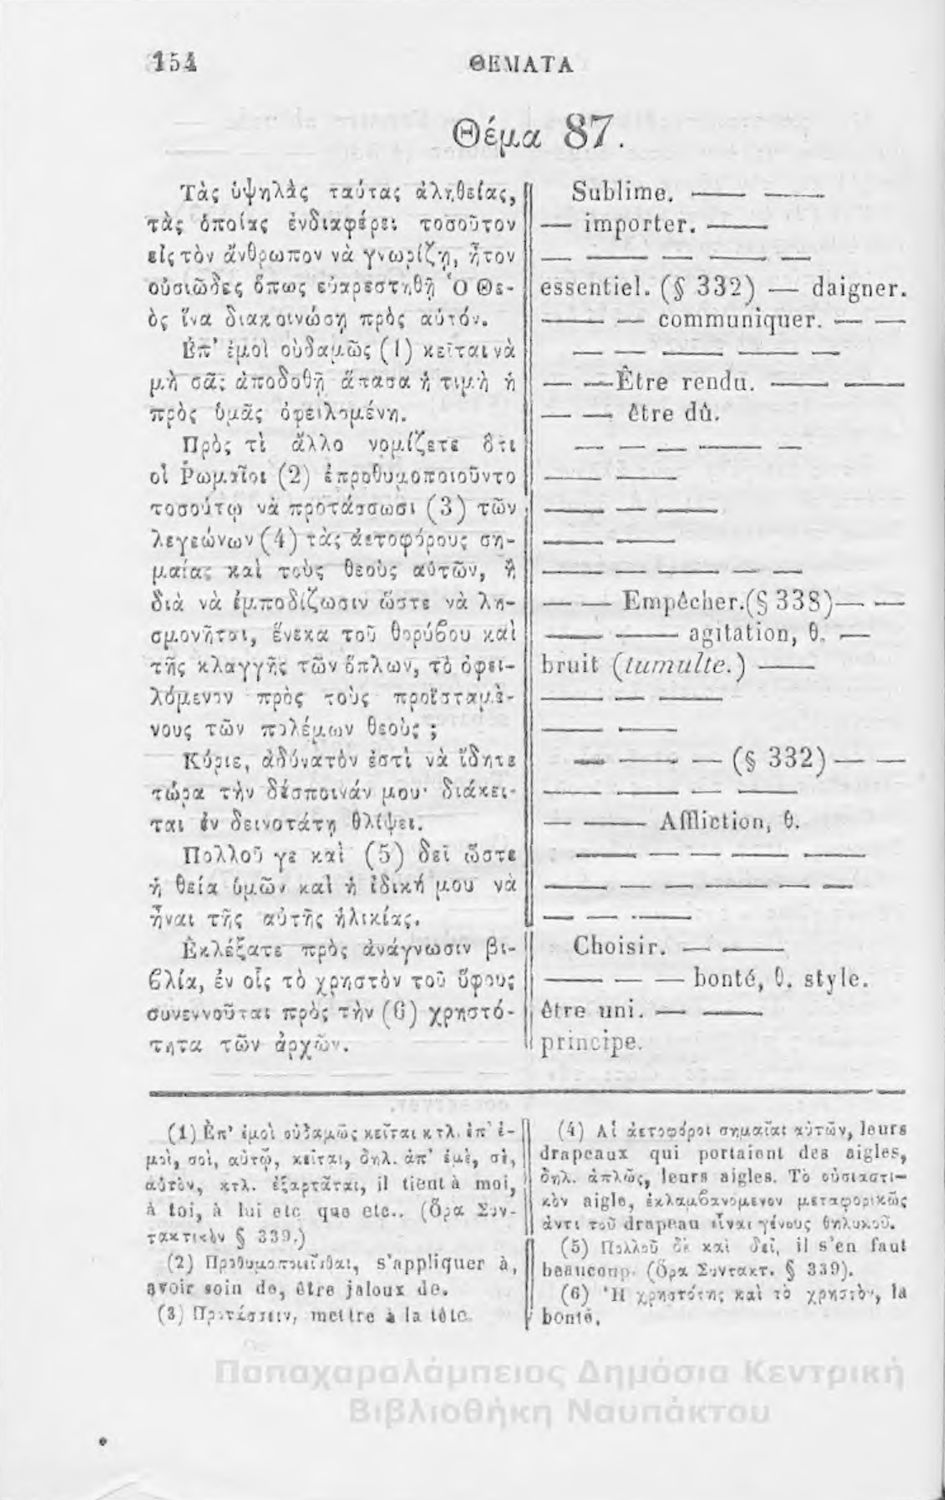 154
ΘΕΜΑΤΑ
Θέμα 87.
Τὰς ὑψηλὰς ταύτας ἀληθείας,
τὰς ὁποίας ἐνδιαφέρει τοσοῦτον
εἰς τὸν ἄνθρωπον νὰ γνωρίζῃ, ἦτον
οὐσιῶδες ὅπως εὐαρεστηθῇ Ὁ Θε-
ὸς ἵνα διακοινώσῃ πρὸς αὐτόν.
Ἐπ' ἐμοὶ οὐδαμῶς (1) κεῖται νὰ
μὴ σᾶς ἀποδοθῇ ἅπασα ἡ τιμὴ ἡ
πρὸς ὑμᾶς ὀφειλομένη.
Πρὸς τὶ ἄλλο νομίζετε ὅτι
οἱ Ῥωμαῖοι (2) ἐπροθυμοποιοῦντο
τοσούτῳ νὰ προτάσσωσι (3) τῶν
λεγεώνων (4) τὰς ἀετοφόρους ση-
μαίας καὶ τοὺς θεοὺς αὑτῶν, ἢ
διὰ νὰ ἐμποδίζωσιν ὥστε νὰ λη-
σμονῆται, ἕνεκα τοῦ θορύβου καὶ
τῆς κλαγγῆς τῶν ὅπλων, τὸ ὀφει-
λόμενον πρὸς τοὺς προϊσταμέ-
νους τῶν πολέμων θεούς ;
Κύριε, ἀδύνατὸν ἐστὶ νὰ ἴδητε
τώρα τὴν δέσποινάν μου· διάκει-
ται ἐν δεινοτάτῃ θλίψει.
Πολλοῦ γε καὶ (5) δεῖ ὥστε
ἡ θεία ὑμῶν καὶ ἡ ἰδική μου νὰ
ἦναι τῆς αὐτῆς ἡλικίας.
Ἐκλέξατε πρὸς ἀνάγνωσιν βι-
βλία, ἐν οἷς τὸ χρηστὸν τοῦ ὕφους
συνεννοῦται πρὸς τὴν (6) χρηστό-
τητα τῶν ἀρχῶν.
Sublime. —— ——
— importer. ——
— —— —— —— —
essentiel. (§ 332) — daigner.
—— — communiquer. — —
— — —— —— —
— —Être rendu. —— ——
— — être dû.
— — — —— —
—— ——
—— — ——
—— ——
—— —— — —
— — Empêcher.(§ 338)— —
—— —— agitation, θ. —
bruit (tumulte.) ——
—— — ——
—— ——
— —— — (§ 332)— —
—— —— — ——
— —— Affliction, θ.
—— —— — ——
—— — —— — —
— — ——
Choisir. — ——
—— — — bonté, θ. style.
être uni. — ——
principe.
(1) Ἐπ' ἐμοὶ οὐδαμῶς κεῖται κτλ. ἐπ' ἐ-
μοὶ, σοὶ, αὐτῷ, κεῖται, δηλ. ἀπ' ἐμὲ, σὲ,
αὐτὸν, κτλ. ἐξαρτᾶται, il tient à moi,
à toi, à lui etc que etc.. (Ὅρα Συν-
τακτικὸν § 339.)
(2) Προθυμοποιεῖσθαι, s'appliquer à,
avoir soin de, être jaloux de.
(3) Προτάσσειν, mettre à la tête.
(4) Αἱ ἀετοφόροι σημαῖαι αὐτῶν, leurs
drapeaux qui portaient des aigles,
δηλ. ἁπλῶς, leurs aigles. Τὸ οὐσιαστι-
κὸν aigle, ἐκλαμβανόμενον μεταφορικῶς
ἀντὶ τοῦ drapeau εἶναι γένους θηλυκοῦ.
(5) Πολλοῦ δὲ καὶ δεῖ, il s'en faut
beaucoup. (Ὅρα Συντακτ. § 339).
(6) Ἡ χρηστότης καὶ τὸ χρηστὸν, la
bonté.
Παπαχαραλάμπειος Δημόσια Κεντρική
Βιβλιοθήκη Ναυπάκτου